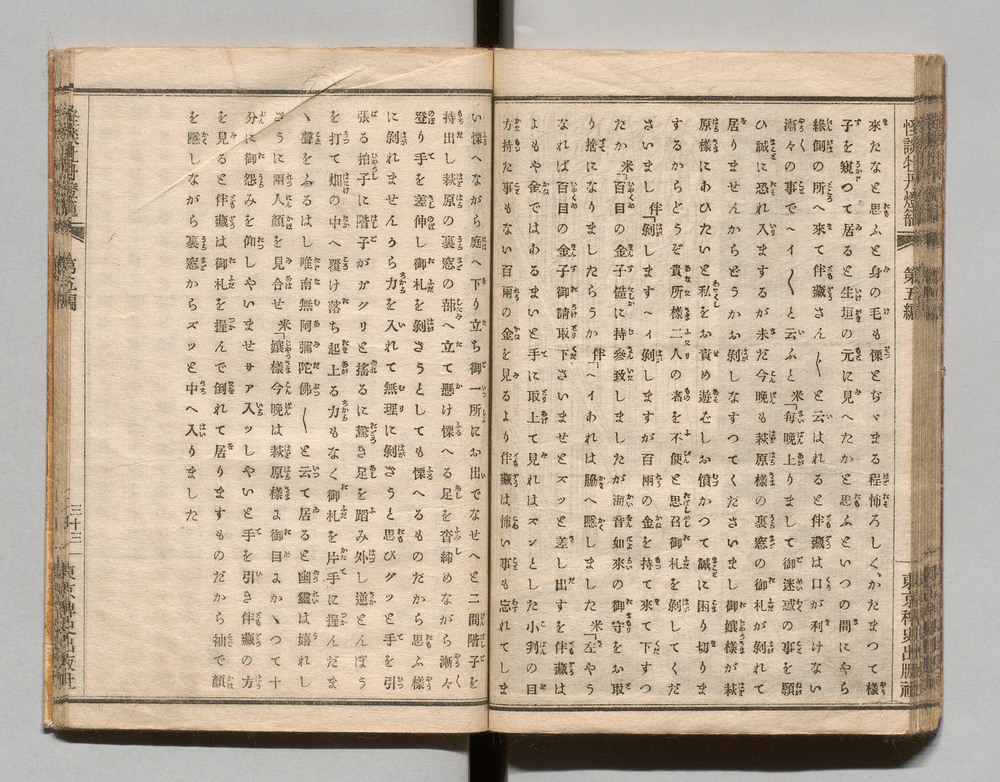 怪談牡丹燈籠
第五編
東京稗史出版社
來たなと思ふと身の毛も慄とぢゞまる程怖ろしく、かたまつて樣
子を窺つて居ると生垣の元に見へたかと思ふといつの間にやら
緣側の所へ來て伴藏さん〱と云はれると伴藏は口が利けない
漸々の事でヘイ〱と云ふと米「每晩上りまして御迷惑の事を願
ひ誠に恐れ入まするが未だ今晩も萩原樣の裏窓の御札が剝れて
居りませんからどうかお剝しなすつてくださいまし御孃樣が萩
原樣にあひたいと私をお責め遊しお憤かつて誠に困り切りま
するからどうぞ貴所樣二人の者を不便と思召御札を剝してくだ
さいまし伴「剝します ヘイ剝しますが百兩の金を持て來て下すつ
たか米「百目の金子慥に持參致しましたが海音如來の御守をお取
り捨になりましたらうか伴「ヘイあれは脇へ隱しました米「左やう
なれば百目の金子御請取下さいませとズッと差し出すを伴藏は
よもや金ではあるまいと手に取上て見れはズンとした小判の目
方持た事もない百兩の金を見るより伴藏は怖い事も忘れてしま
い慄へながら庭へ下り立ち御一所にお出でなせへと二間階子を
持出し萩原の裏窓の蔀へ立て懸け慄へる足を沓締めながら漸々
登り手を差伸し御札を剝さうとしても慄へるものだから思ふ樣
に剝れませんゟら力を入れて無理に剝さうと思ひグッと手を引
張る拍子に階子がガクリと搖るに驚き足を蹈み外し逆とんぼう
を打て畑の中へ覆け落ち起上る力もなく御札を片手に握んだま
ゝ聲をふるはし唯南無阿彌陀佛〱と云て居ると幽靈は嬉れし
さうに兩人顏を見合せ米「孃樣今晩は萩原樣ょ御目ょかゝつて十
分に御怨みを仰しやいませサア入ッしやいと手を引き伴藏の方
を見ると伴藏は御札を握んで倒れて居りますものだから袖で顏
を隱しながら裏窓からズッと中へ入りました
怪談牡丹燈籠
第五編
三十三
東京稗史出版社